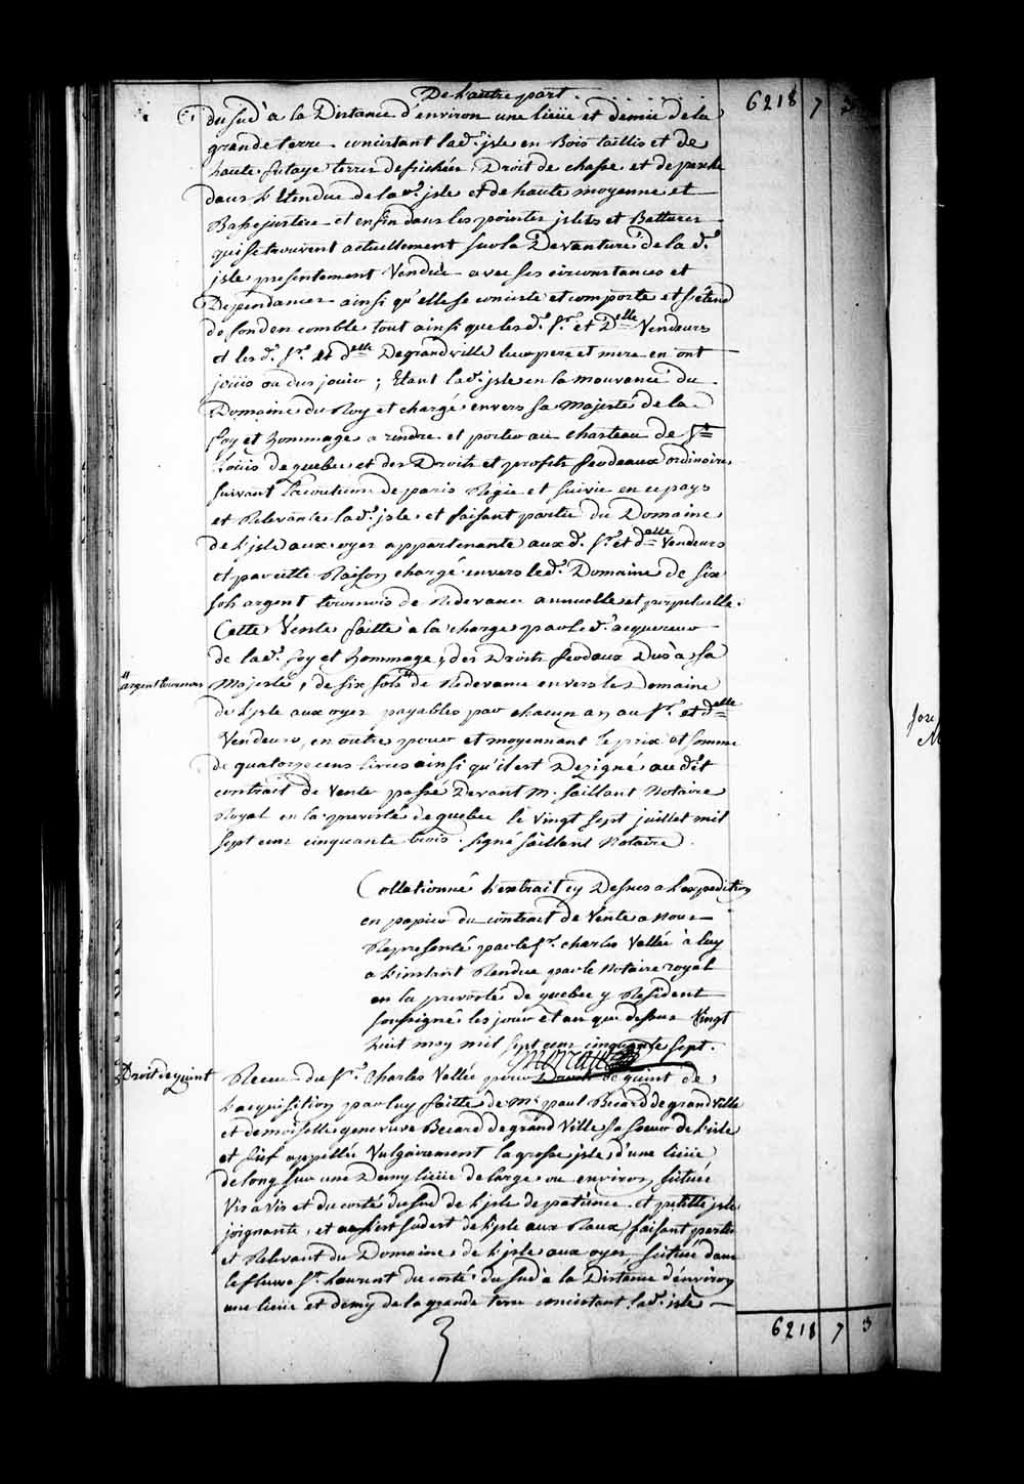 De L'autre part . . . . . . . 6218 7 3
du sud à la Distance d'environ une lieüe et demie de la
grande terre concistant lad.e isle en Bois taillis et de
haute futaye terres defrichées, Droit de chasse et de pesche
dans L'Etendue de la d.e isle et de haute moyenne et
Basse justice et enfin dans les pointes islets et Battures
qui se trouvent actuellement sur la Devanture de la d.e
isle presentement Vendüe avec ses circonstances et
Dependances ainsi qu'elle se concicte et comporte et s'étend
de fond en comble tout ainsi que les d. Sr. et Delle Vendeurs
et les d. Sr. et delle Degrandville leurs pere et mere en ont
joüis ou dus jouir ; Etant lad.e isle en la mouvance du
Domaine du Roy et chargé envers sa Majesté de la
foy et hommage a rendre et porter au chasteau de St
Loüis de quebec et des Droits et profits feodeaux ordinaires
suivant la coutume de paris Régie et suivie en ce pays
et Relevante lad.e isle et faisant partie du Domaine
de L'isle aux oyes appartenante aux d. Sr. et delle Vendeurs
et par cette Raison chargé envers led. Domaine de six
sols argent tournois de Redevance annuelle et perpetuelle.
Cette Vente faitte à la charge par le d. acquereur
de lad.e foy et hommage, des Droits feodaux Dus à sa
"argent tournois Majesté, de six sols " de Redevance envers le Domaine
de L'isle aux oyes payables par chacun an au Sr. et delle
Vendeurs, en outre pour et moyennant le prix et somme
de quatorze cens livres ainsi qu'il est Dezigné au dit
contrait de Vente passé Devant M. Saillant Notaire
Royal en la prevosté de quebec le Vingt sept juillet mil
sept cens cinquante trois. signé Saillant Notaire.
Collationné L'extrait cy Dessus a L'expedition
en papier du contract de Vente a nous
Representé par le Sr. charles Vallée à luy
a L'instant Rendue par le Notaire royal
en la prevosté de quebec y Resident
soussigné les jour et an que dessus Vingt
huit may mil sept cens cinquante sept.
Droit de quint Receu du Sr. Charles Vallée pour Droit de quint de
L'acquisition par luy faitte de Mr. paul Becard de grand Ville
et demoiselle genevieve Becard de grand Ville sa soeur de L'isle
et fief appellée Vulgairement la grosse isle, d'une lieüe
de long sur une Demy lieüe de large ou environ, située
Vis a Vis et du costé du sud de L'isle de patience et petitte isle
joignante, et sudest de L'isle aux Raux, faisant partie
et Relevant du Domaine de L'isle aux oyes, située dans
le fleuve St. Laurent du costé du sud à la Distance d'environ
une lieüe et demy de la grande terre concistant lad.e isle
6218 7 3